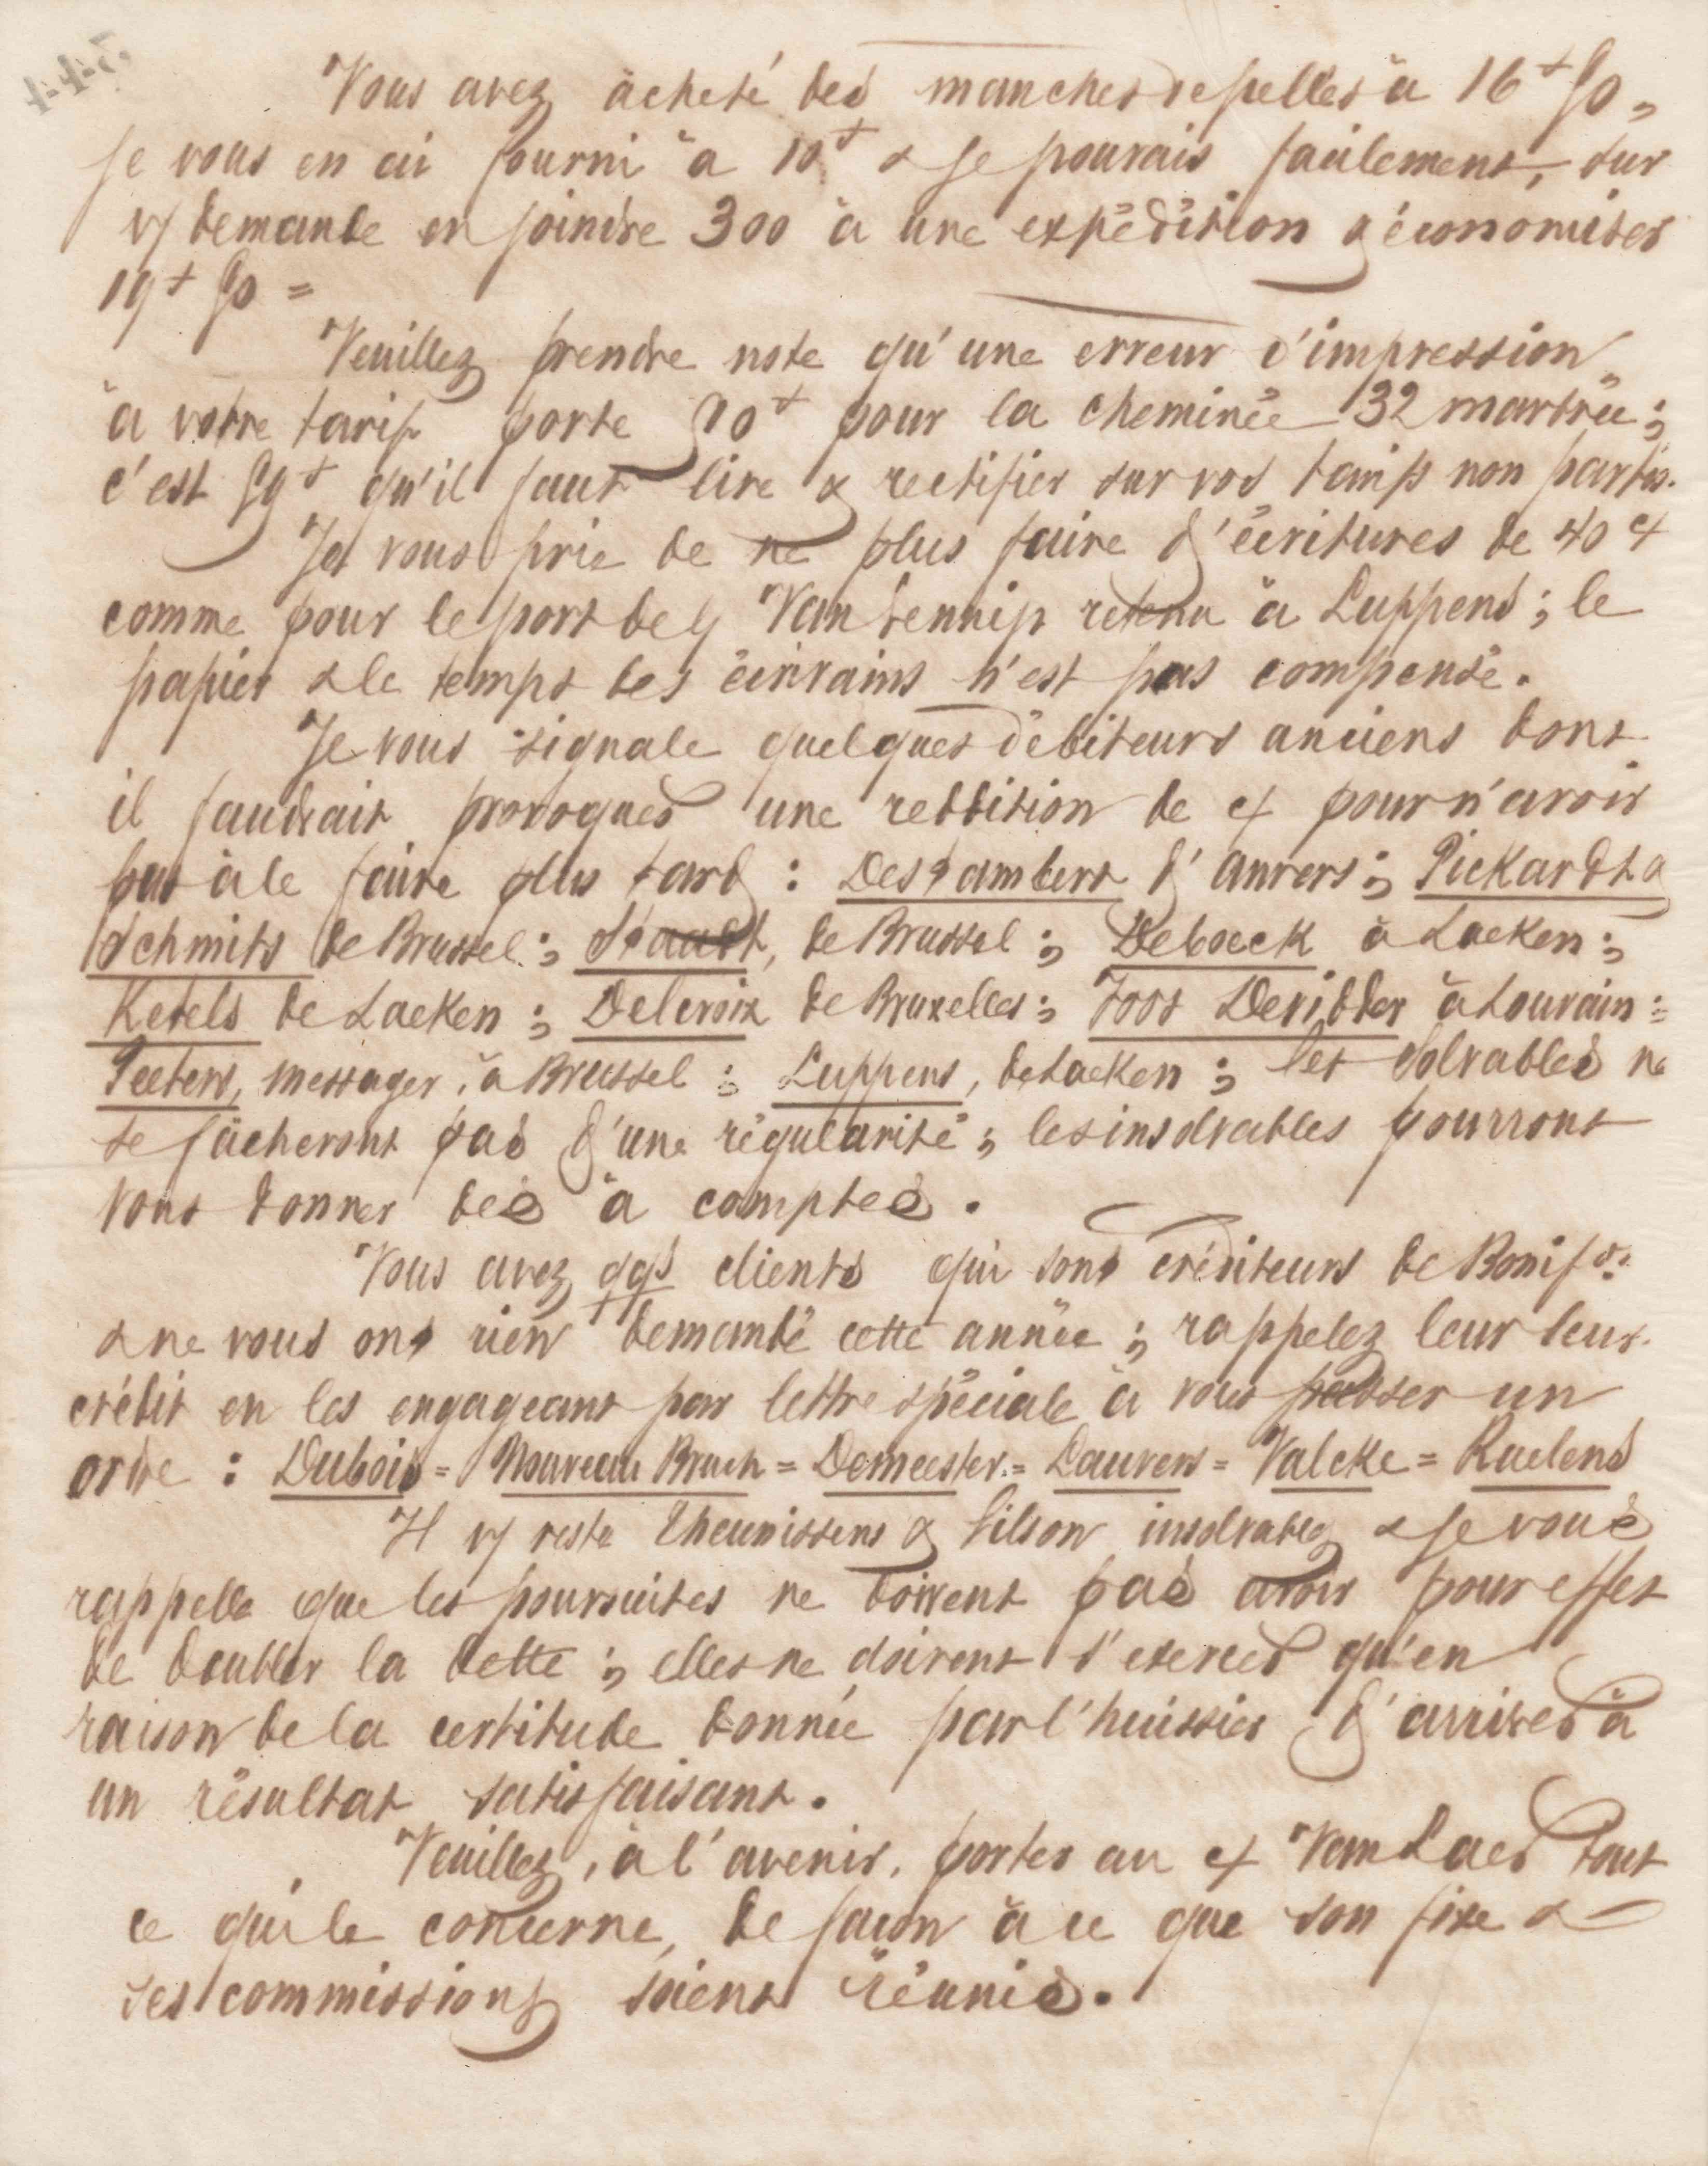 Vous avez acheté des manches de pelles à 16 f 50,
je vous en ai fourni à 10 f & je pouvais facilement, sur
v/ demande en joindre 300 à une expédition & économiser
19 f 50 =
Veuillez prendre note qu'une erreur d'impression
à votre tarif porte 90 f pour la cheminée 32 martrée ;
c'est 59 f qu'il faut lire & rectifier sur vos tarifs non partis.
Je vous prie de ne plus faire d'écritures de 40 c/
comme pour le port de Vantennip retenu à Luppens ; le
papier & le temps des écrivains n'est pas compensé.
Je vous signale quelques débiteurs anciens dont
il faudrait provoquer une reddition de c/ pour n'avoir
pas à le faire plus tard : Destambert d'Anvers ; Pickardt &
Schmits de Brussel ; Staadt, de Brussel ; Deboeck à Laeken ;
Ketels de Laeken ; Delcroix de Bruxelles ; Joos Deridder à Louvain :
Peeters, messager, à Brussel : Luppens, de Laeken ; les solvables ne
se fâcheront pas d'une régularité ; les insolvables pourront
vous donner des à comptes.
Vous avez qqs clients qui sont créditeurs de Bonifon.
& ne vous ont rien demandé cette année ; rappelez leur leur
crédit en les engageant par lettre spéciale à vous passer un
ordre : Dubois = Nouveau Bruch = Demeester = Lauvers = Valcke = Ruelens
Il v/ reste Theunissens & Gilson insolvables & je vous
rappelle que les poursuites ne doivent pas avoir pour effet
de doubler la dette ; elles ne doivent s'exercer qu'en
raison de la certitude donnée par l'huissier d'arriver à
un résultat satisfaisant.
Veuillez, à l'avenir, porter au c/ Van Laer tout
ce qui le concerne, de façon à ce que son fixe &
ses commissions soient réunis.